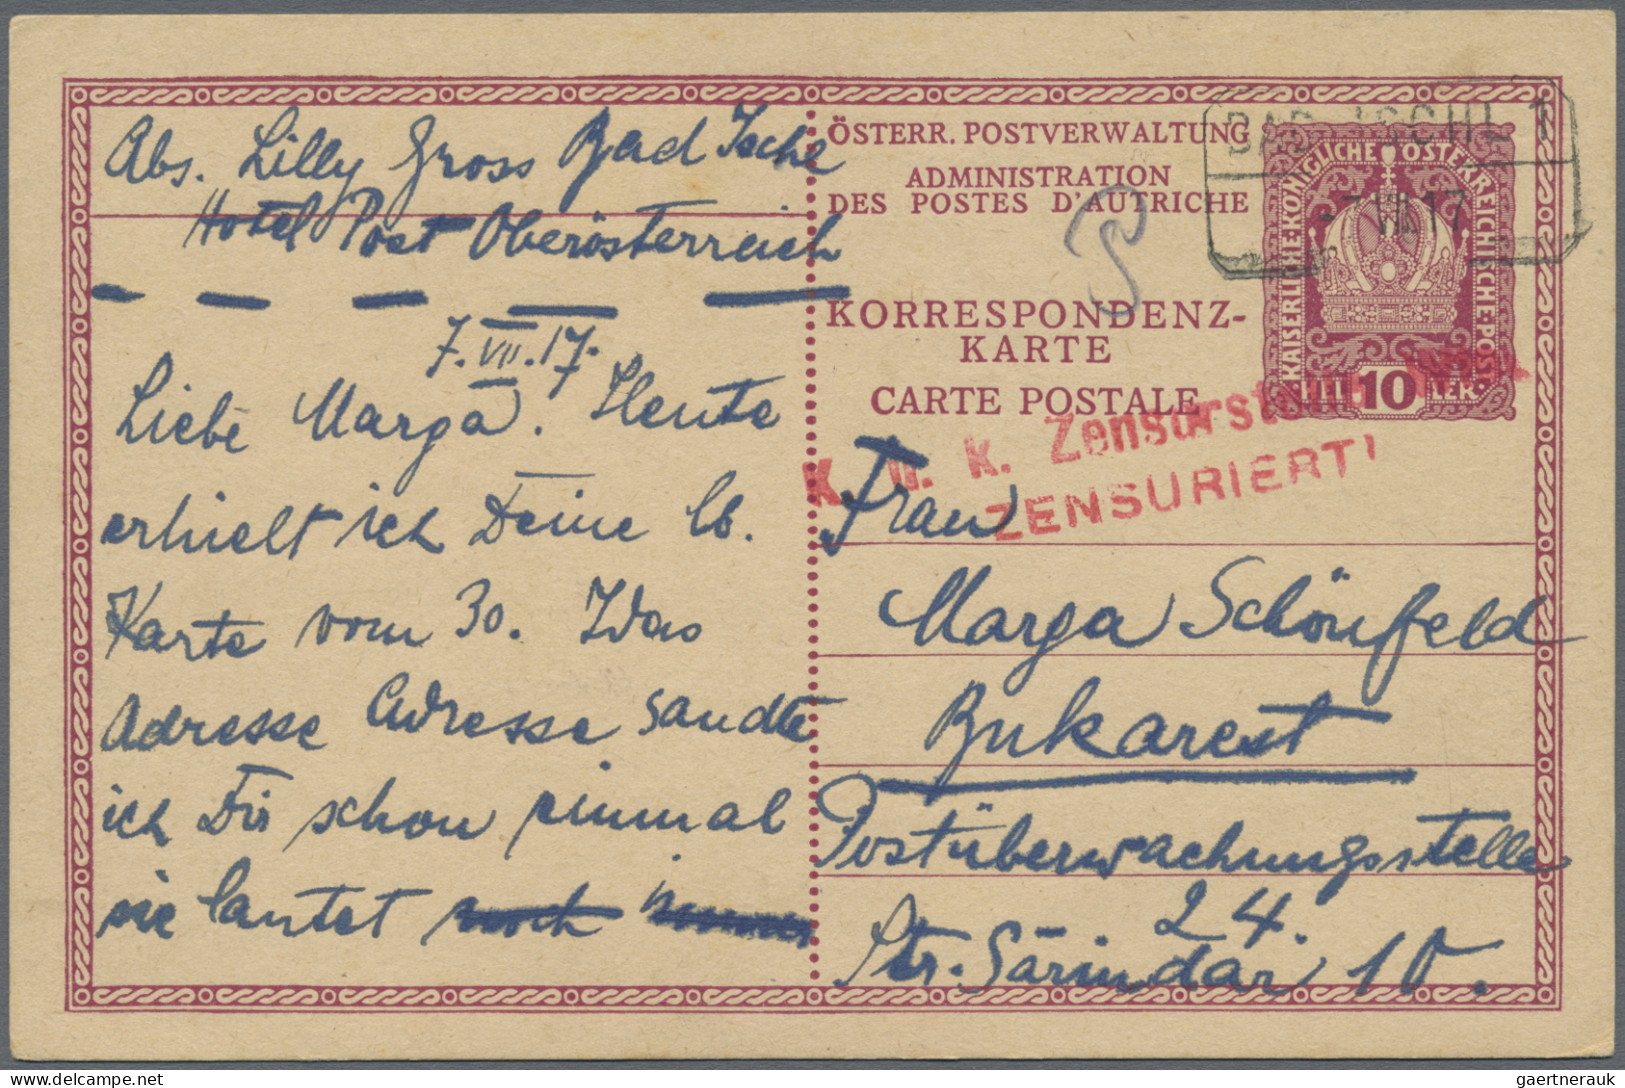 Abs. Lilly Gross Bad Ischl
Hotel Post Oberösterreich
7.VII.17.
Liebe Marga. Heute
erhielt ich Deine lb.
Karte vom 30. Was
Adresse Adresse sandte
ich Dir schon einmal
sie lautet noch immer
ÖSTERR. POSTVERWALTUNG
ADMINISTRATION
DES POSTES D'AUTRICHE
KORRESPONDENZ-
KARTE
CARTE POSTALE
BAD ISCHL 1
-7 VII 17
KAISERLICHE·KÖNIGLICHE·ÖSTERREICHISCHE·POST
10
HELLER
K. u. k. Zensurstelle
ZENSURIERT!
Frau
Marga Schönfeld
Bukarest
Postüberwachungsstelle
24.
Str. Sărindar 10.
gaertnerauk